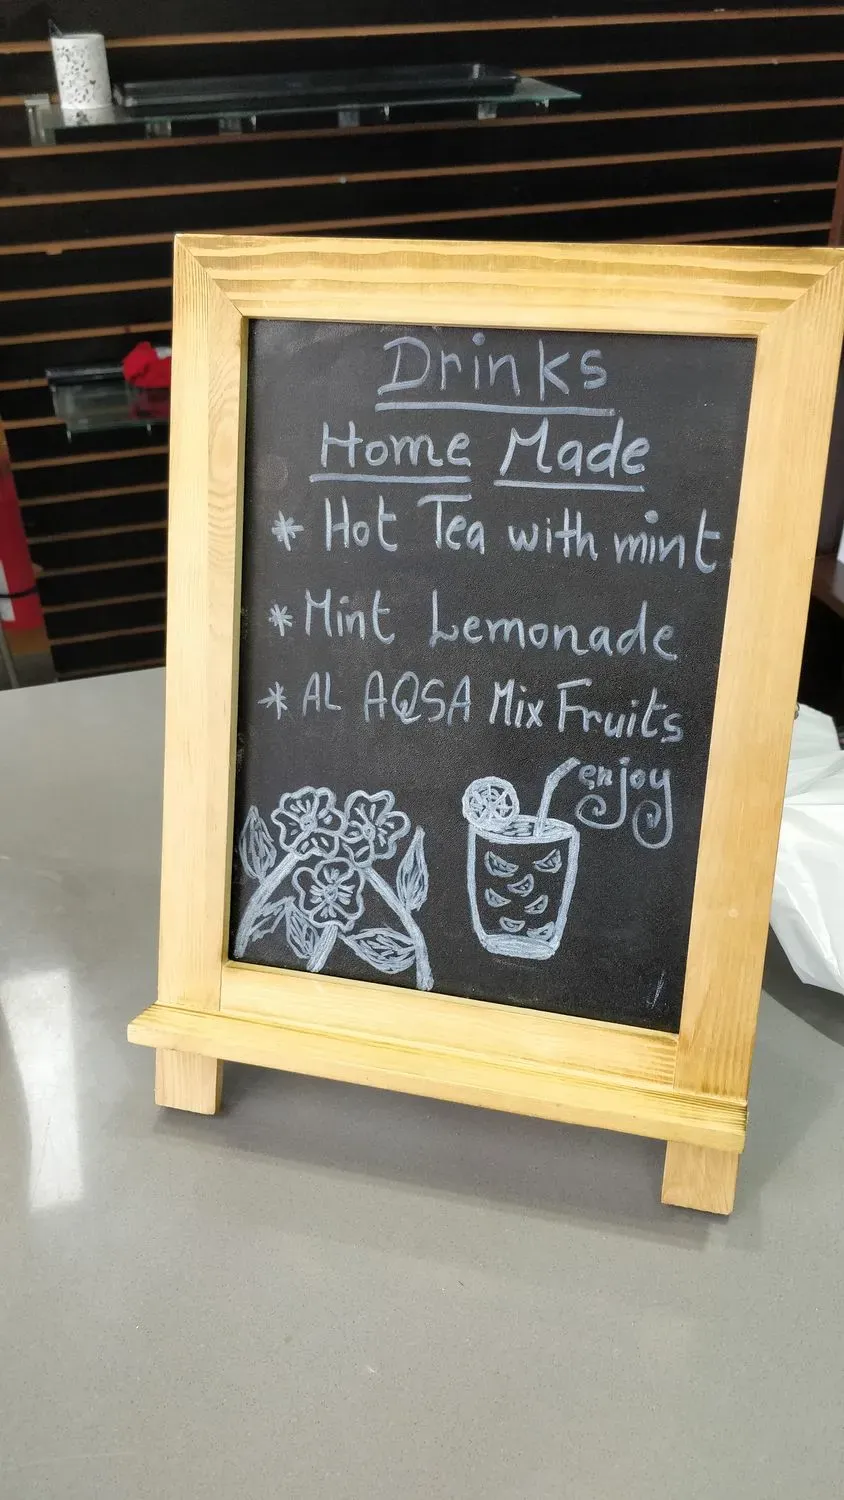 Drinks
Home Made
* Hot Tea with mint
* Mint Lemonade
* AL AQSA Mix Fruits
enjoy